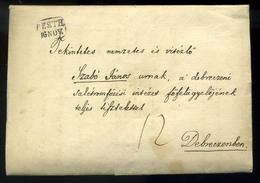 PESTH
16 NOV.
Tekintetes nemzetes és vitézlő
Szabó János urnak, a debreczeni
intézet főfelügyelőjének
teljes tisztelettel
12
Debreczenben.